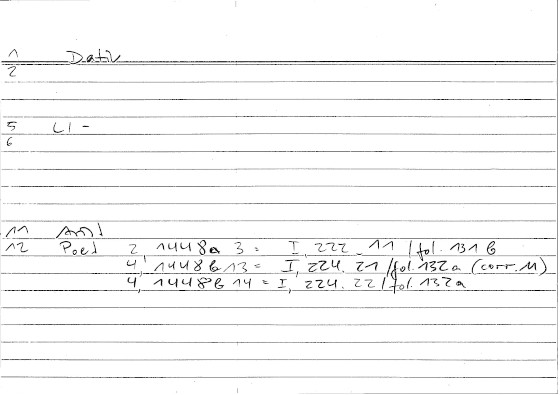 1 Dativ
2
5 LI -
6
11 Arist
12 Poet 2, 1448a 3 = I, 222.11 / fol. 131b
4, 1448b 13 = I, 224.21 / fol. 132a (corr. M)
4, 1448b 14 = I, 224.22 / fol. 132a